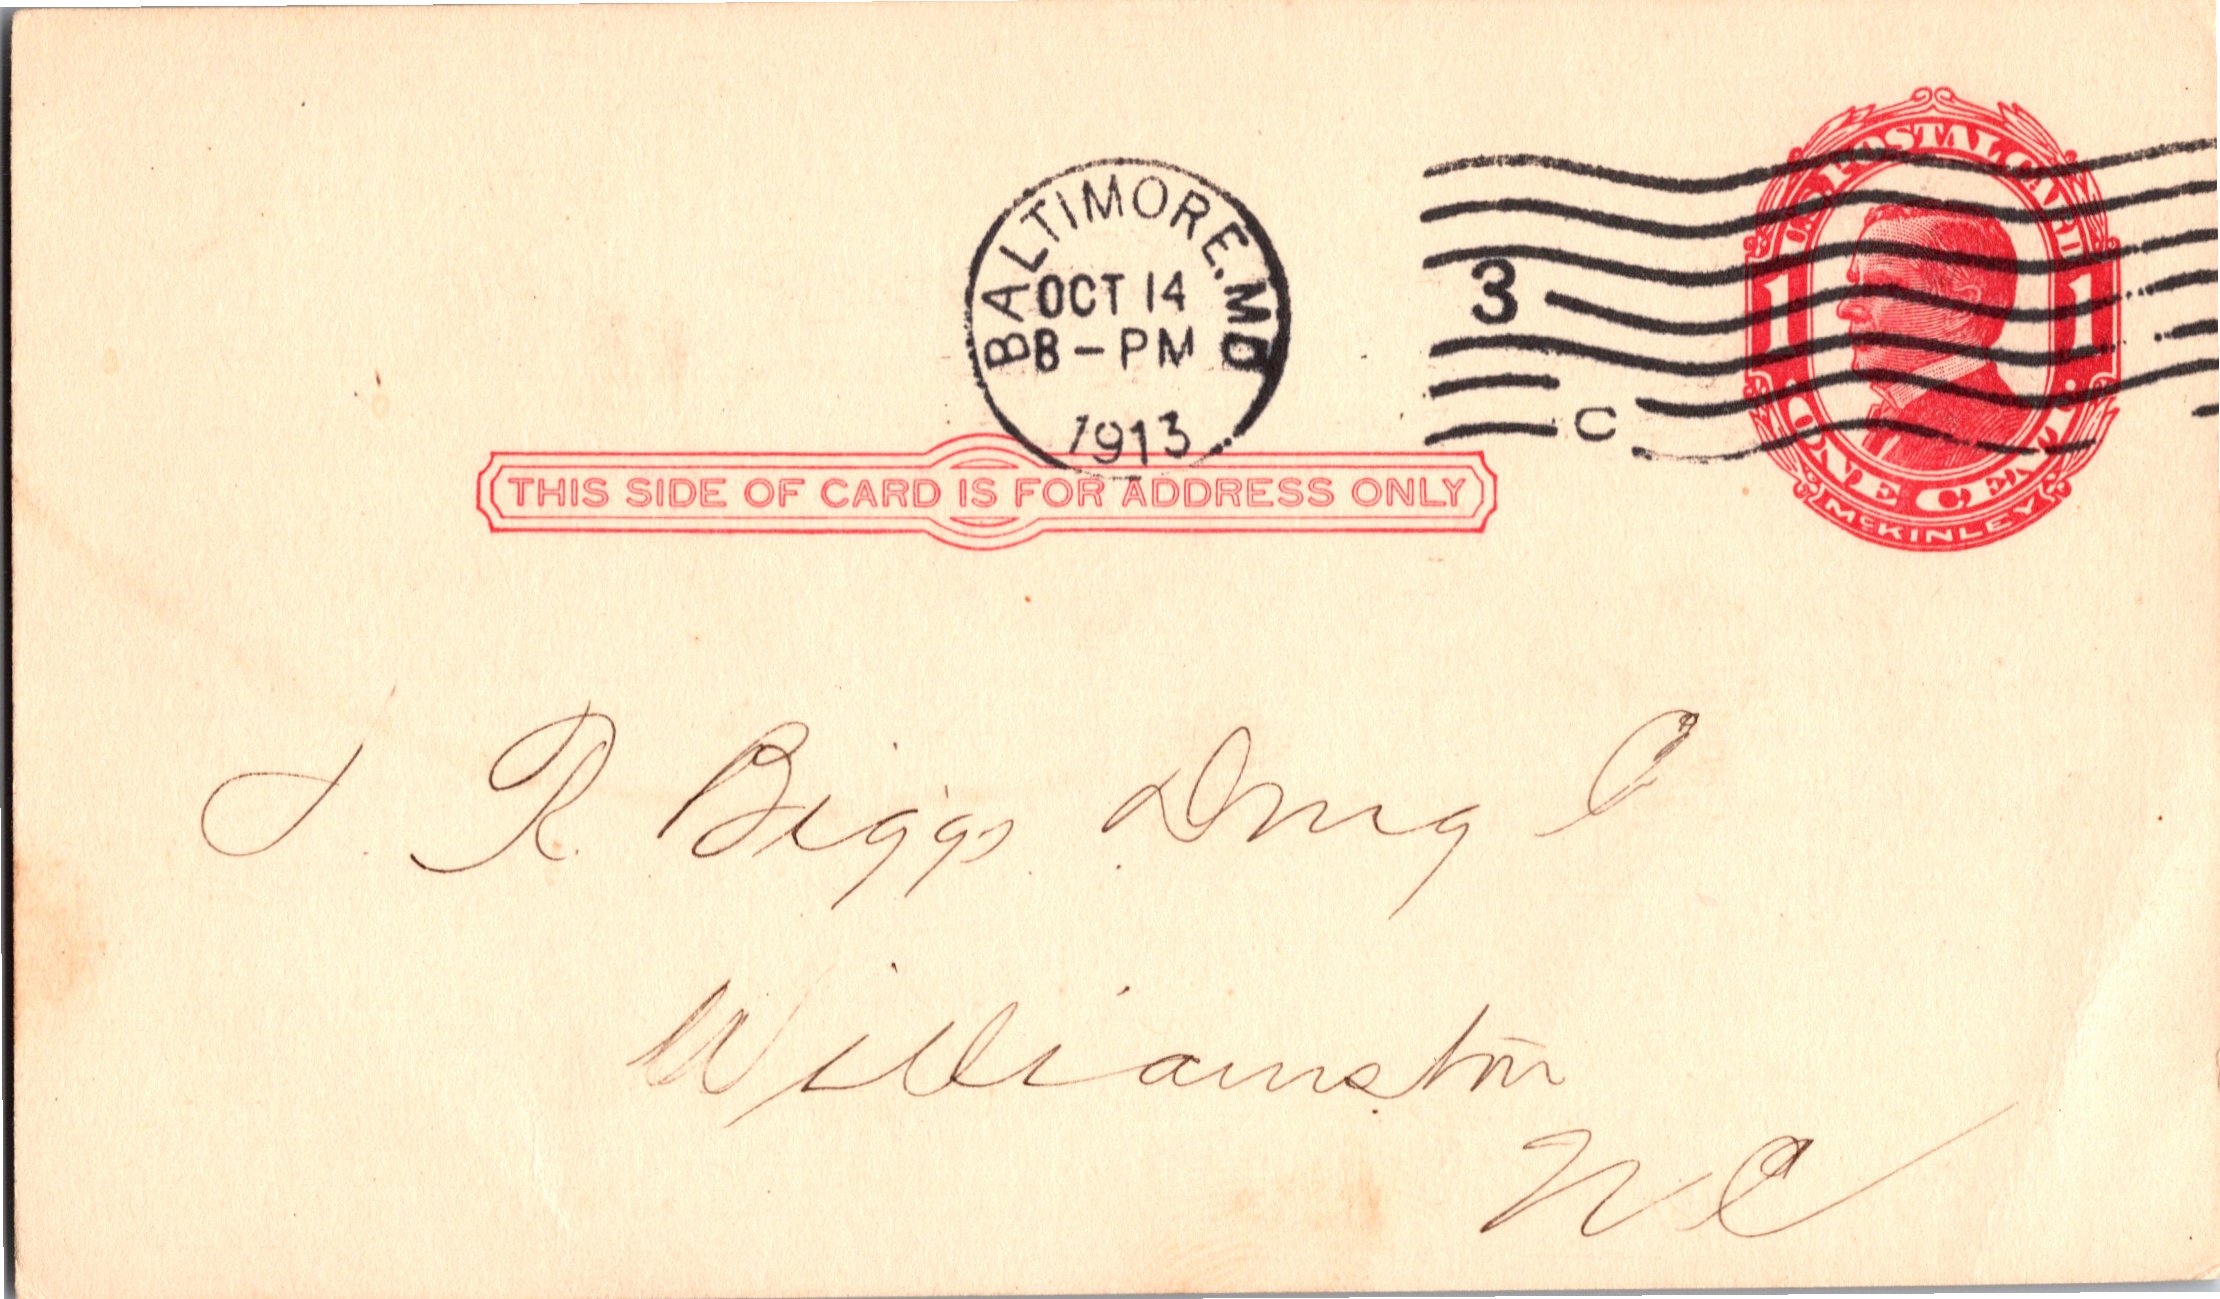 U.S. POSTAL CARD
1 1
ONE CENT
McKINLEY
BALTIMORE, MD
OCT 14
8-PM
1913
3
C
THIS SIDE OF CARD IS FOR ADDRESS ONLY
R Biggs Drug C
Williamston
N C